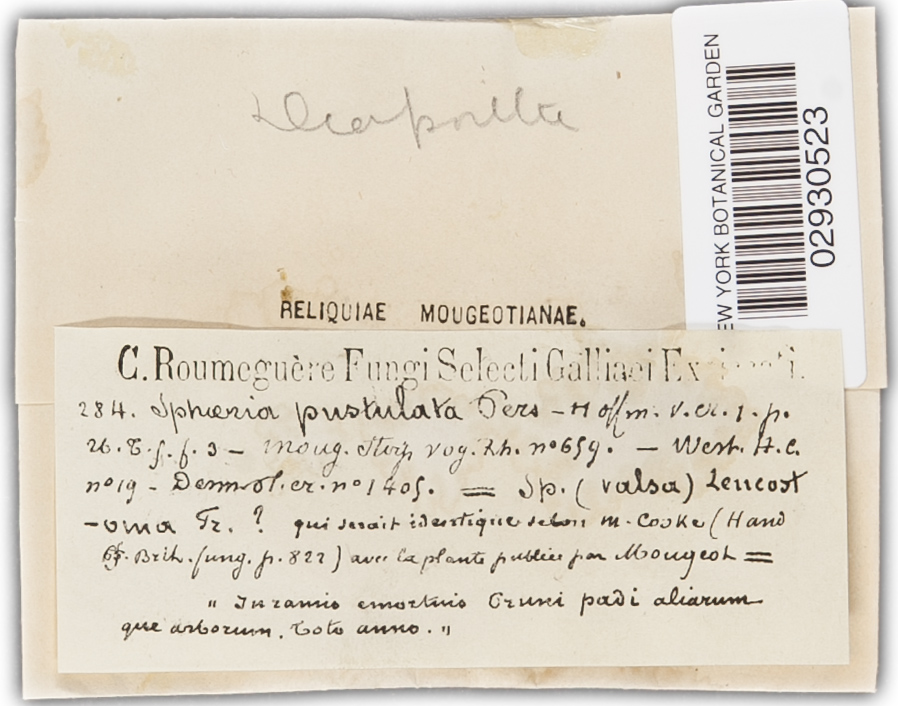 Diaporthe
NEW YORK BOTANICAL GARDEN
02930523
RELIQUIAE MOUGEOTIANAE.
C. Roumeguère Fungi Selecti Galliaei Exsiccati.
284. Sphæria pustulata Pers - Hoffm. v. cr. 1. p.
26. T. 5. f. 3 - Moug. Stirp. vog. Rh. nº 659. - West. H. C.
nº 19 - Desmaz. cr. nº 1405. = Sp. (valsa) Leucost
-oma Fr. ? qui serait identique selon M. Cooke (Hand
Brit. fung. p. 827) avec la plante publiée par Mougeot =
" In ramis emortuis Pruni padi aliarum
que arborum. Toto anno. "